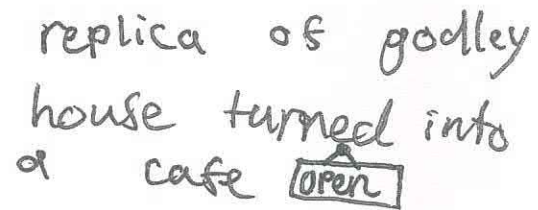 replica of godley
house turned into
a cafe open